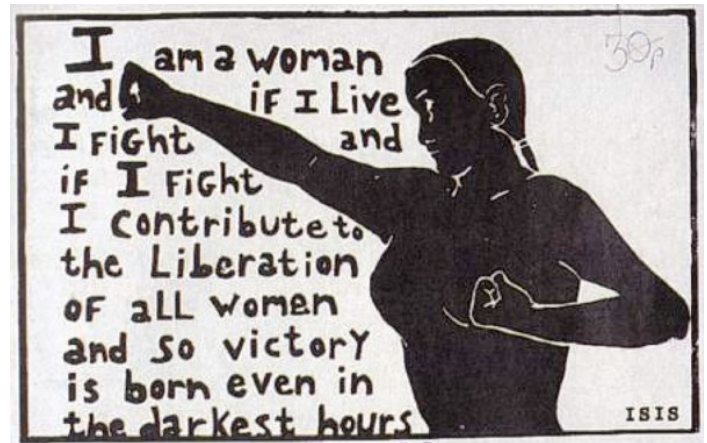 30p
I am a woman
and if I Live
I Fight and
if I Fight
I contribute to
the Liberation
of all women
and so victory
is born even in
the darkest hours
ISIS